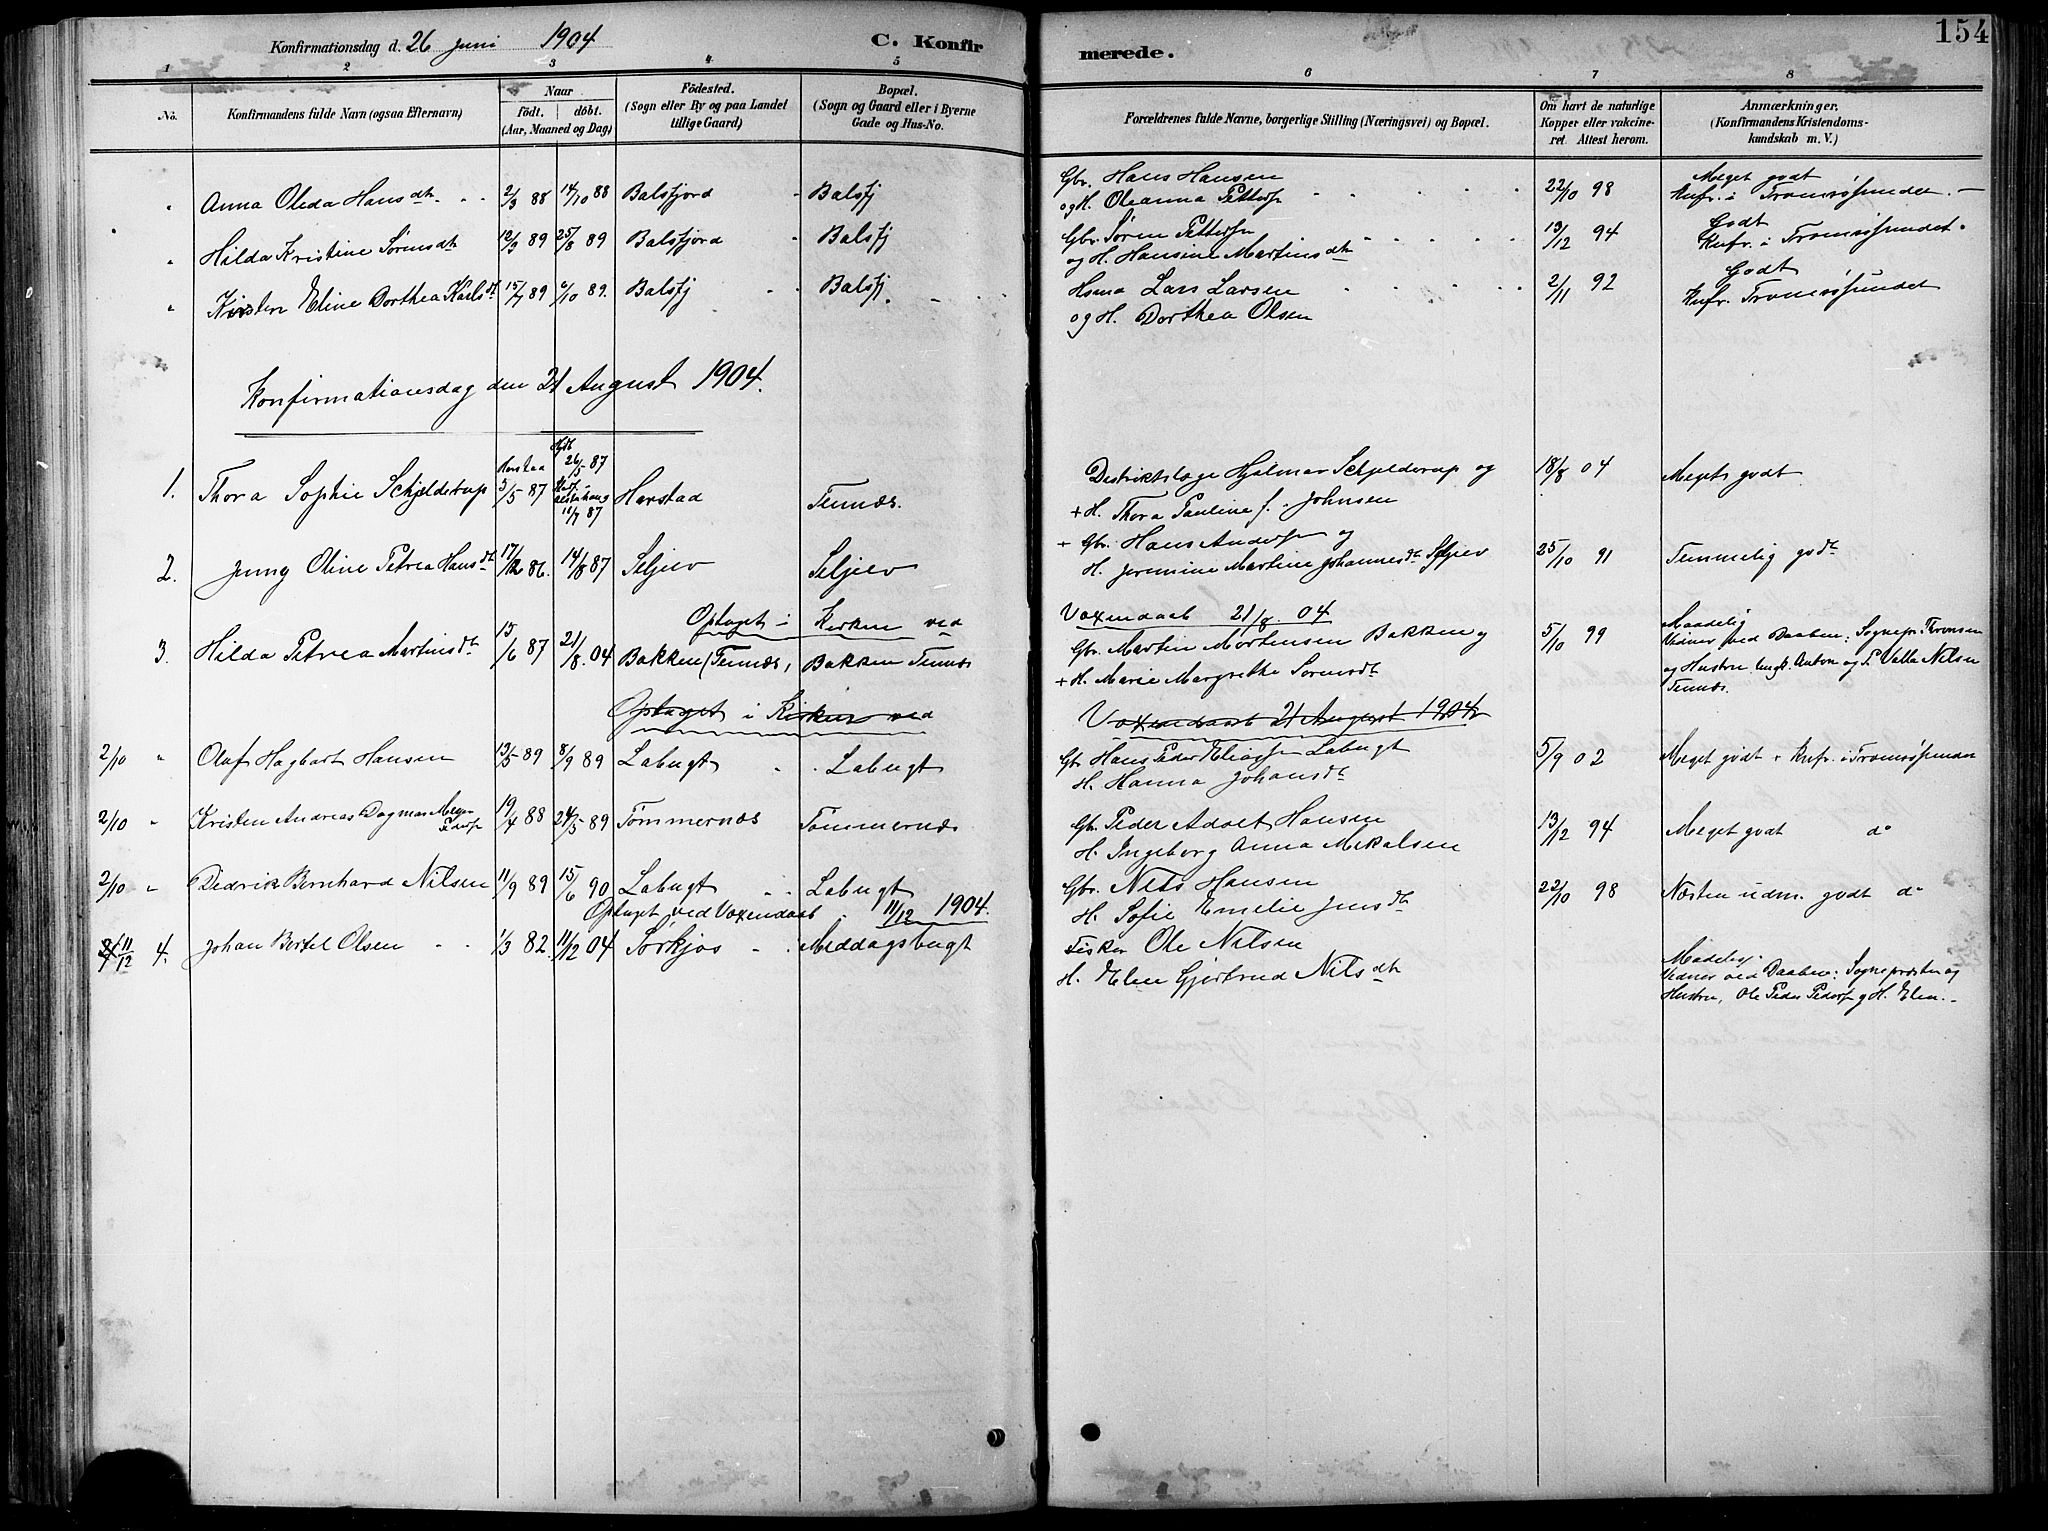 Konfirmationsdag d. 26 Juni 1904
C. Konfirmerede.
154
1 2 3 4 5 6 7 8
No.
Konfirmandens fulde Navn (ogsaa Efternavn)
Naar
födt. döbt.
(Aar, Maaned og Dag)
Födested.
(Sogn eller By og paa Landet
tillige Gaard)
Bopæl.
(Sogn og Gaard eller i Byerne
Gade og Hus-No.
Forældrenes fulde Navne, borgerlige Stilling (Næringsvei) og Bopæl.
Om havt de naturlige
Kopper eller vakcine-
ret Attest herom.
Anmærkninger.
(Konfirmandens Kristendoms-
kundskab m. V.)
" Anna Oleda Hansdtr. 2/3 88 14/10 88 Balsfjord Balsfj Gbr. Hans Hansen 22/10 98 Meget godt
og H. Oleanna Petters Knfr. i Tromsösundet
" Hilda Kristine Sörensdtr 12/3 89 25/8 89 Balsfjord Balsfj Gbr. Sören Petters 13/12 94 Godt
og H. Hansine Martinsdtr Knfr. i Tromsösundet.
" Kirsten Eline Dorthea Karlsdt 15/7 89 6/10 89. Balsfj Balsfj. Hsma Lars Larsen 2/11 92 Godt
og H. Dorthea Olsen Knfr. Tromsösundet
Konfirmationsdag den 21 August 1904.
1. Thora Sophie Schjelderup 5/5 87 26/5 87 11/7 87 Harstad Tennæs. Distriktslæge Hjalmar Schjelderup og 18/8 04 Meget godt
+ H. Thora Pauline f. Johnsen
2. Jenny Oline Petrea Hansdt 17/12 86. 14/8 87 Seljeev Seljeev + Gbr. Hans Anders og 25/10 91 Temmelig godt
H. Jeremine Martine Johannesdt Seljeev
Optaget i Kirken ved Voxendaab 21/8. 04
3. Hilda Petrea Martinsdt 15/6 87 21/8. 04 Bakken (Tennæs, Bakken Tennæs Gbr. Martin Mortensen Bakken og 5/10 99 Maadelig
+ H. Marie Margrethe Sörensdt Vidner ved Daaben: Sognepr.
og Hustru Ungk. Anton og P. Valla Nilsen
Tennæs.
Optaget i Kirken ved Voxendaab 21 August 1904
2/10 " Olaf Hagbart Hansen 13/5 89 8/9 89 Labugt Labugt Gbr Hans Peder Elias Labugt 5/9 02 Meget godt Knfr. i Tromsösundet
H. Hanna Johansdt
2/10 " Kristen Andreas Dagmar 19/4 88 24/5 89 Tömmernæs Tömmernæs Gbr. Peder Adolf Hansen 13/12 94 Meget godt do
H. Ingeborg Anna Mikalsen
2/10 " Didrik Bernhard Nilsen 11/9 89 15/6 90 Labugt Labugt Gbr. Nils Hansen 22/10 98 Næsten udm. godt do
H. Sofie Emelie Jensdt
Optaget ved Voxendaab 11/12 1904.
11/12 4. Johan Bertel Olsen 1/3 82. 11/12 04 Sörkjos Middagsbugt Fisker Ole Nilsen
H. Elen Gjertrud Nilsdtr
Madelig.
Vidner ved Daaben: Sognepræsten og
Hustru, Ole Peder Peders og H. Elen.